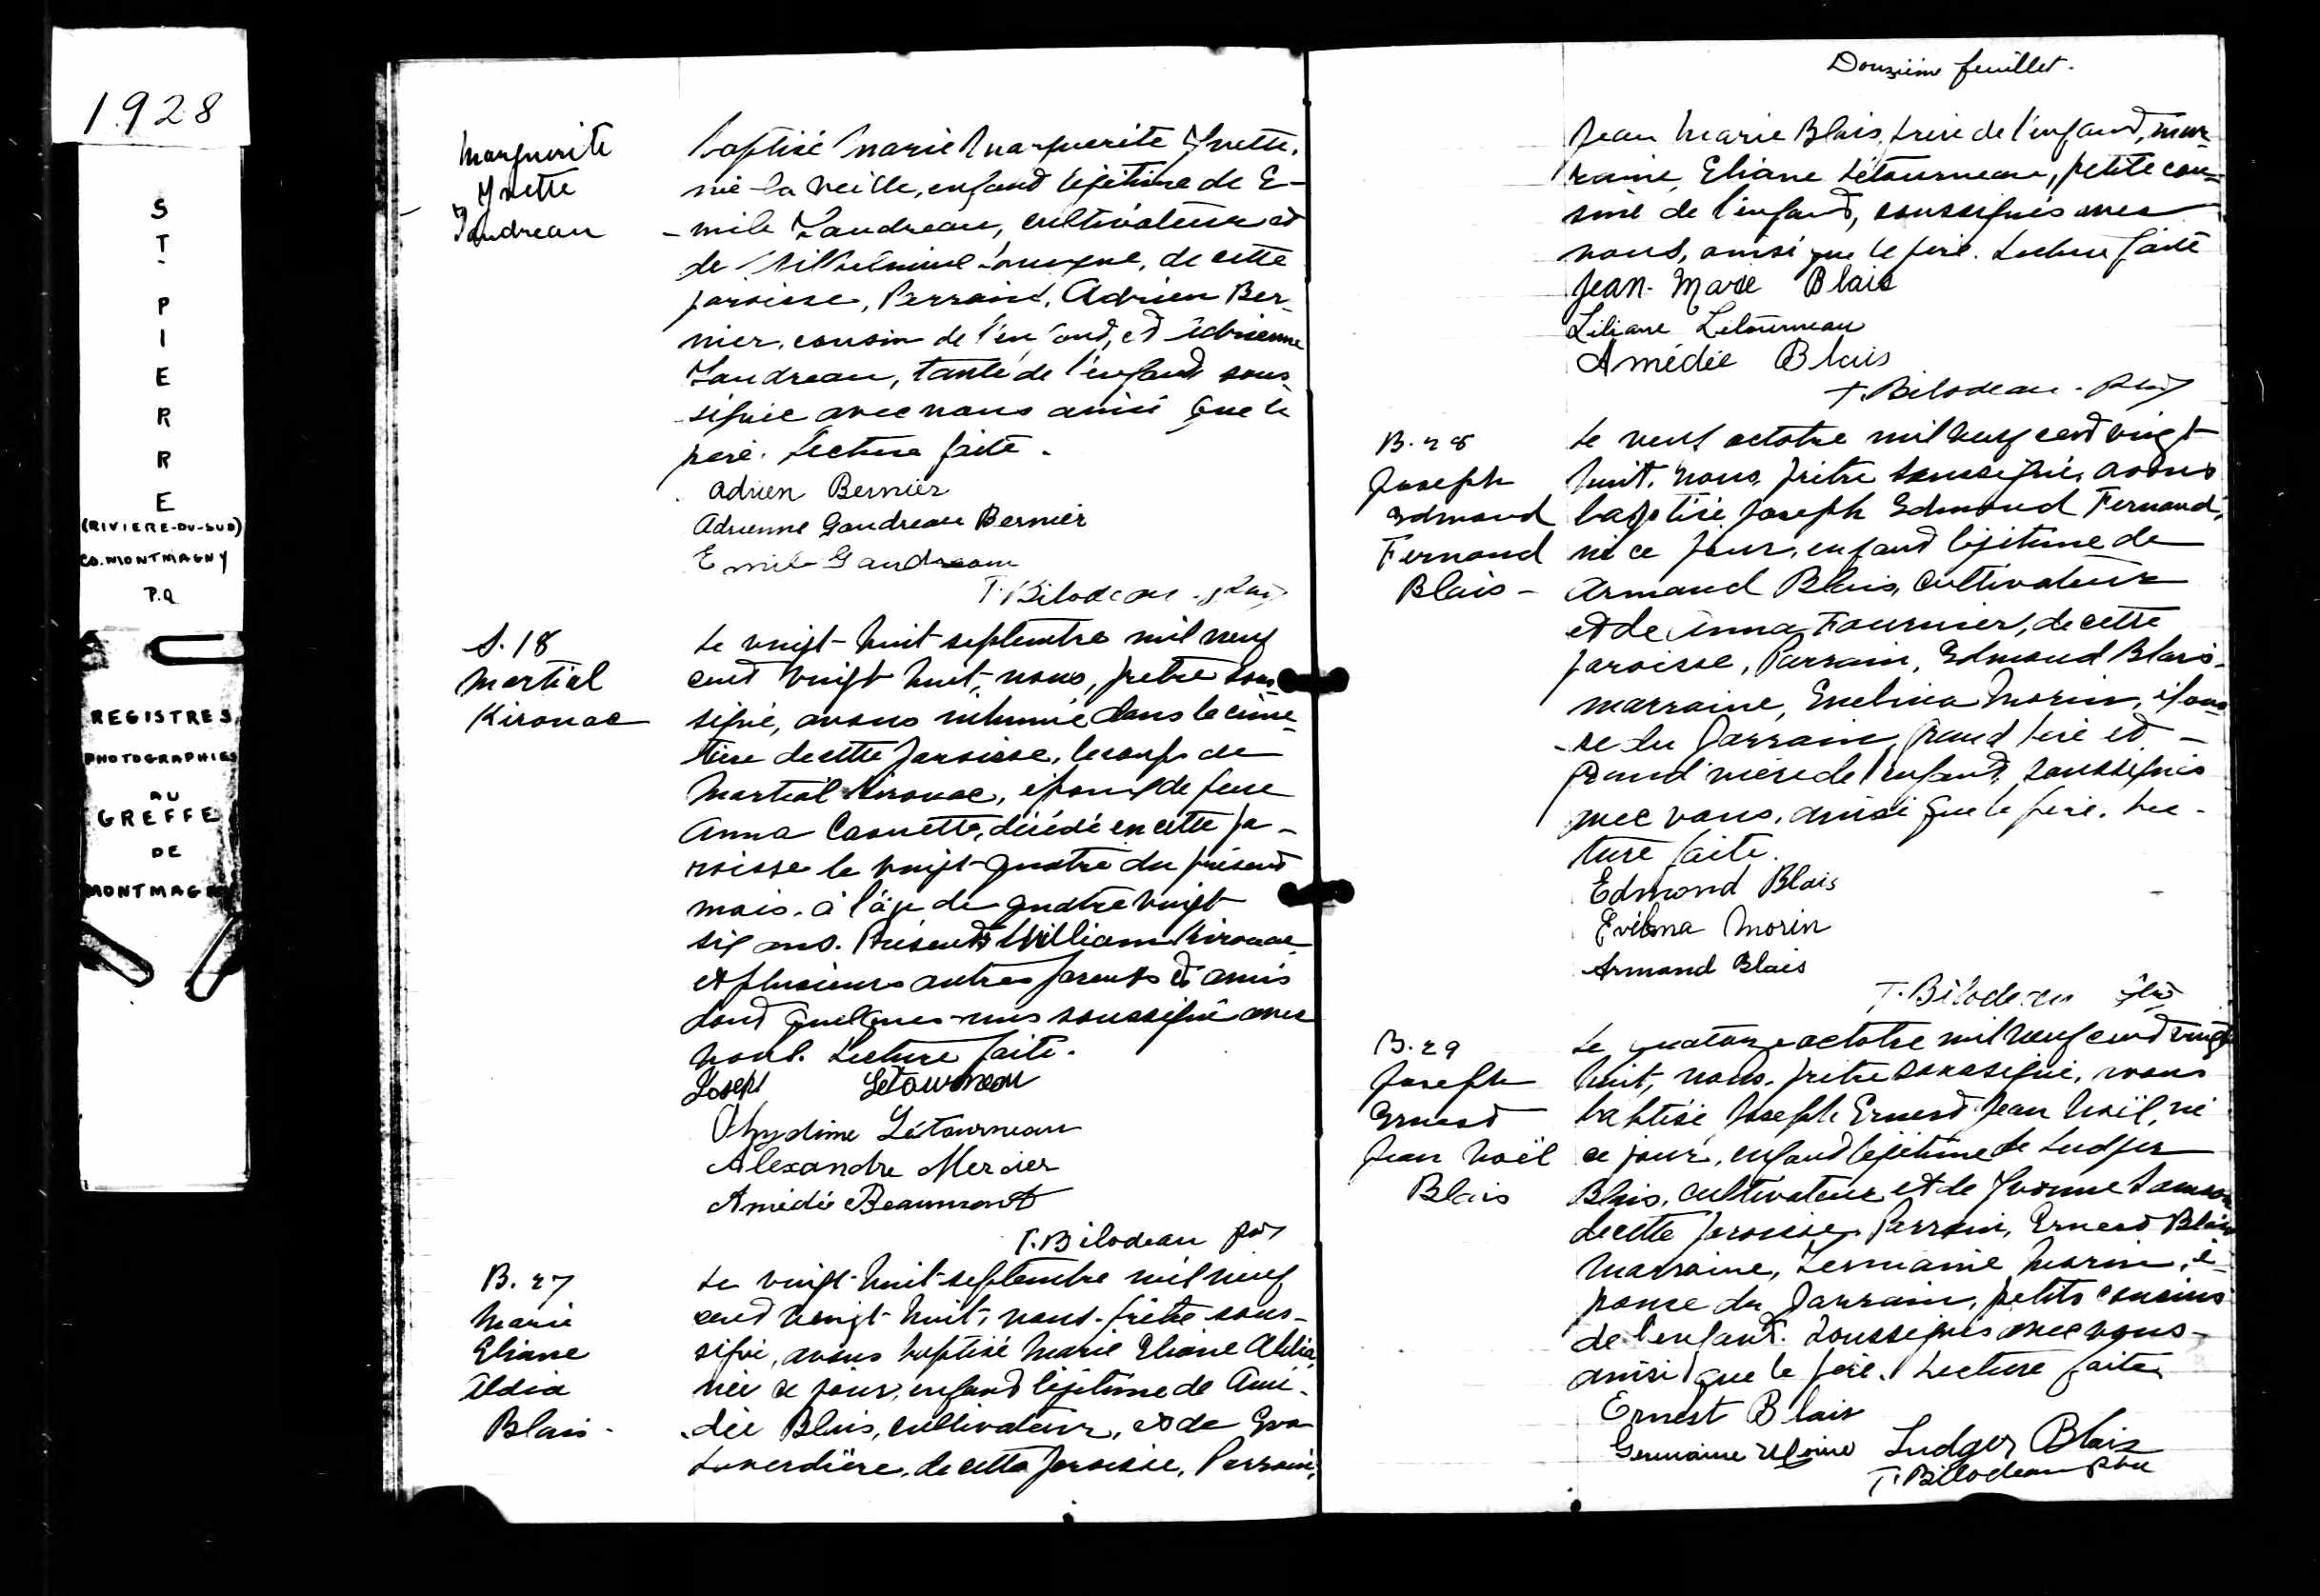 1928
ST-PIERRE
(RIVIERE-DU-SUD)
CO. MONTMAGNY
P.Q
REGISTRES
PHOTOGRAPHIES
AU
GREFFE
DE
MONTMAGNY
Marguerite
Yvette
Gaudreau
baptisé Marie Marguerite Yvette,
née la veille, enfant légitime de E-
mile Gaudreau, cultivateur et
de, de cette
paroisse, Parrain, Adrien Ber-
nier, cousin de l'enfant, et Adrienne
Gaudreau, tante de l'enfant sous-
signée avec nous ainsi que le
père. Lecture faite.
Adrien Bernier
Adrienne Gaudreau Bernier
Emile Gaudreau
T. Bilodeau ptre
S. 18
Martial
Kirouac
Le vingt-huit septembre mil neuf
cent vingt huit, nous, prêtre sous-
signé, avons inhumé dans le cime-
tière de cette paroisse, le corps de
Martial Kirouac, époux de feue
Anna Caouette, décédé en cette pa-
roisse le vingt-quatre du présent
mois, à l'âge de quatre vingt
six ans. Présents William Kirouac
et plusieurs autres parents et amis
dont quelques-uns soussigné avec
nous. Lecture faite.
Joseph Letourneau
Létourneau
Alexandre Mercier
Amédé Beaumont
T. Bilodeau ptre
B. 27
Marie
Eliane
Aldia
Blais-
Le vingt-huit-septembre mil neuf
cent vingt-huit, nous, prêtre sous-
signé, avons baptisé Marie Eliane Aldia,
née ce jour, enfant légitime de Amé-
dée Blais, cultivateur, et de Eva
Laverdière, de cette paroisse, Parrain,
Douzième feuillet.
Jean Marie Blais, frère de l'enfant, mar-
raine, Eliane Létourneau, petite cou-
sine de l'enfant, soussignés avec
nous, ainsi que le père. Lecture faite
Jean-Marie Blais
Liliane Letourneau
Amédée Blais
T. Bilodeau-ptre
B. 28
Joseph
Edmond
Fernand
Blais-
Le neuf octobre mil neuf cent vingt
huit, nous, prêtre soussigné, avons
baptisé Joseph Edmond Fernand,
né ce jour, enfant légitime de
Armand Blais, cultivateur
et de Anna Fournier, de cette
paroisse, Parrain, Edmond Blais-
marraine, Emelina Morin, épou-
se du parrain, grand père et
grand'mère de l'enfant, soussignés
avec nous, ainsi que le père. Lec-
ture faite.
Edmond Blais
Evélina Morin
Armand Blais
T. Bilodeau ptre
B. 29
Joseph
Ernest
Jean Noël
Blais
Le quatorze octobre mil neuf cent vingt
huit, nous, prêtre soussigné, avons
baptisé Joseph Ernest Jean Noël, né
ce jour, enfant légitime de Ludger
Blais, cultivateur et de Yvonne Samson
de cette paroisse, Parrain, Ernest Blais
Marraine, Germaine Morin, é-
pouse du parrain, petits cousins
de l'enfant. Soussignés avec nous-
ainsi que le père. Lecture faite
Ernest Blais
Germaine Morin Ludger Blais
T. Bilodeau ptre